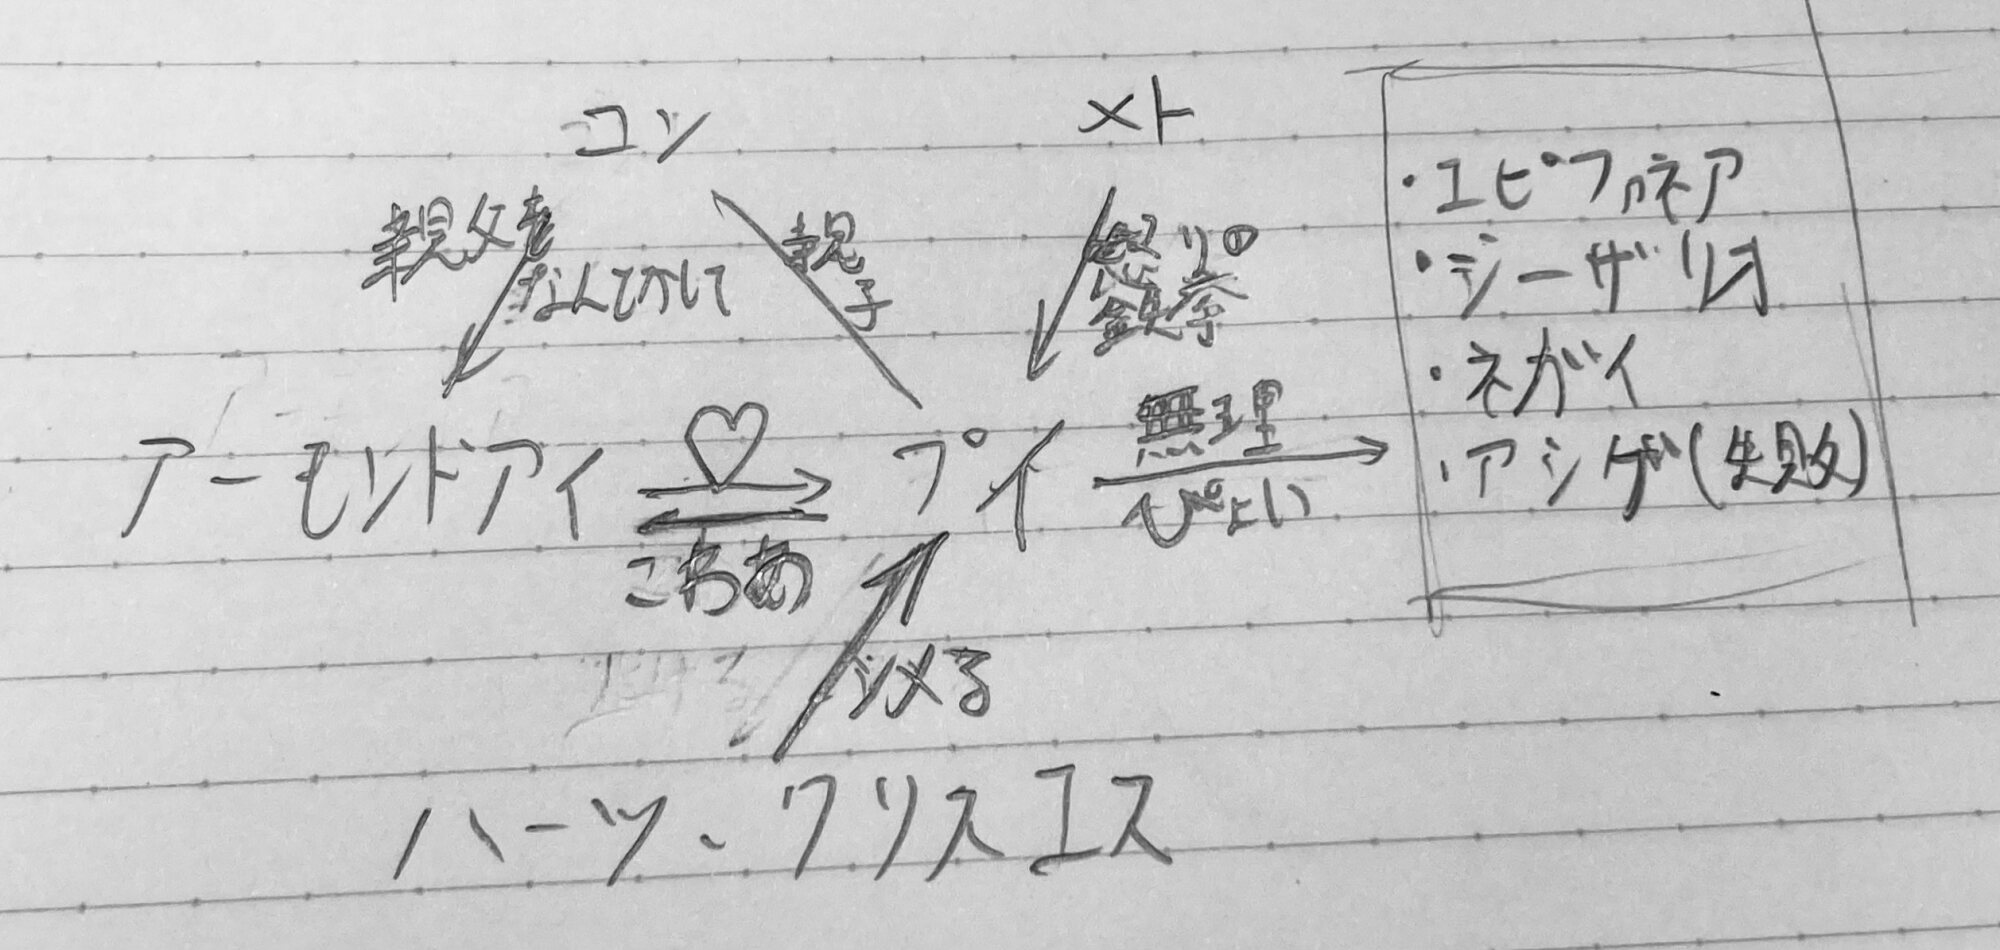 コン
メト
親父を
なんてかして
親
子
怒りの
鉄拳
・エピファネア
・シーザリオ
・ネガイ
・アシゲ(失敗)
アーモンドアイ
プイ
無理
ぴょい
こわあ
シメる
ハーツ、クリスエス